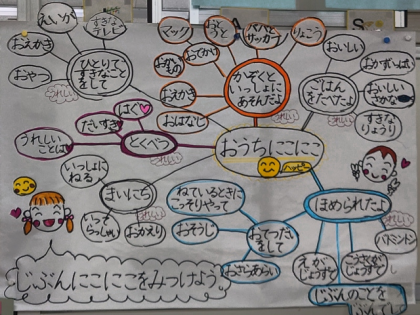 えいが
すきな
テレビ
おえかき
おやつ
ひとりで
すきなこと
をして
うれしい
マック
パパと
サッカー
りょこう
おでかけ
おえかき
おはなし
かぞくと
いっしょに
あそんだよ
うれしい
おいしい
おかずいっぱい
おいしい
さかな
すきな
りょうり
ごはん
をたべたよ
うれしい
はぐ
だいすき
うれしい
ことば
とくべつ
うれしい
おうちにこにこ
ハッピー
いっしょに
ねる
まいにち
いって
らっしゃい
おかえり
うれしい
ねているときに
こっそりやって
おそうじ
おてつだい
をして
おさらあらい
うれしい
ほめられたよ
うれしい
えが
じょうずて
バドミントン
じぶんのことを
じぶんにこにこをみつけよう